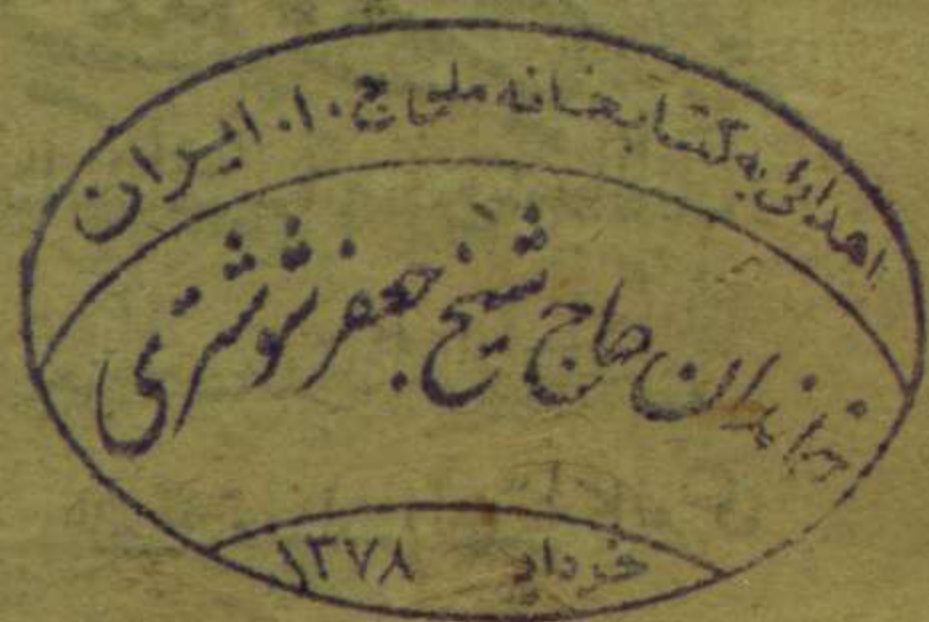 اهدائی به کتابخانه ملی ج.ا. ایران
خاندان حاج شیخ جعفر شوشتری
خرداد ۱۳۷۸